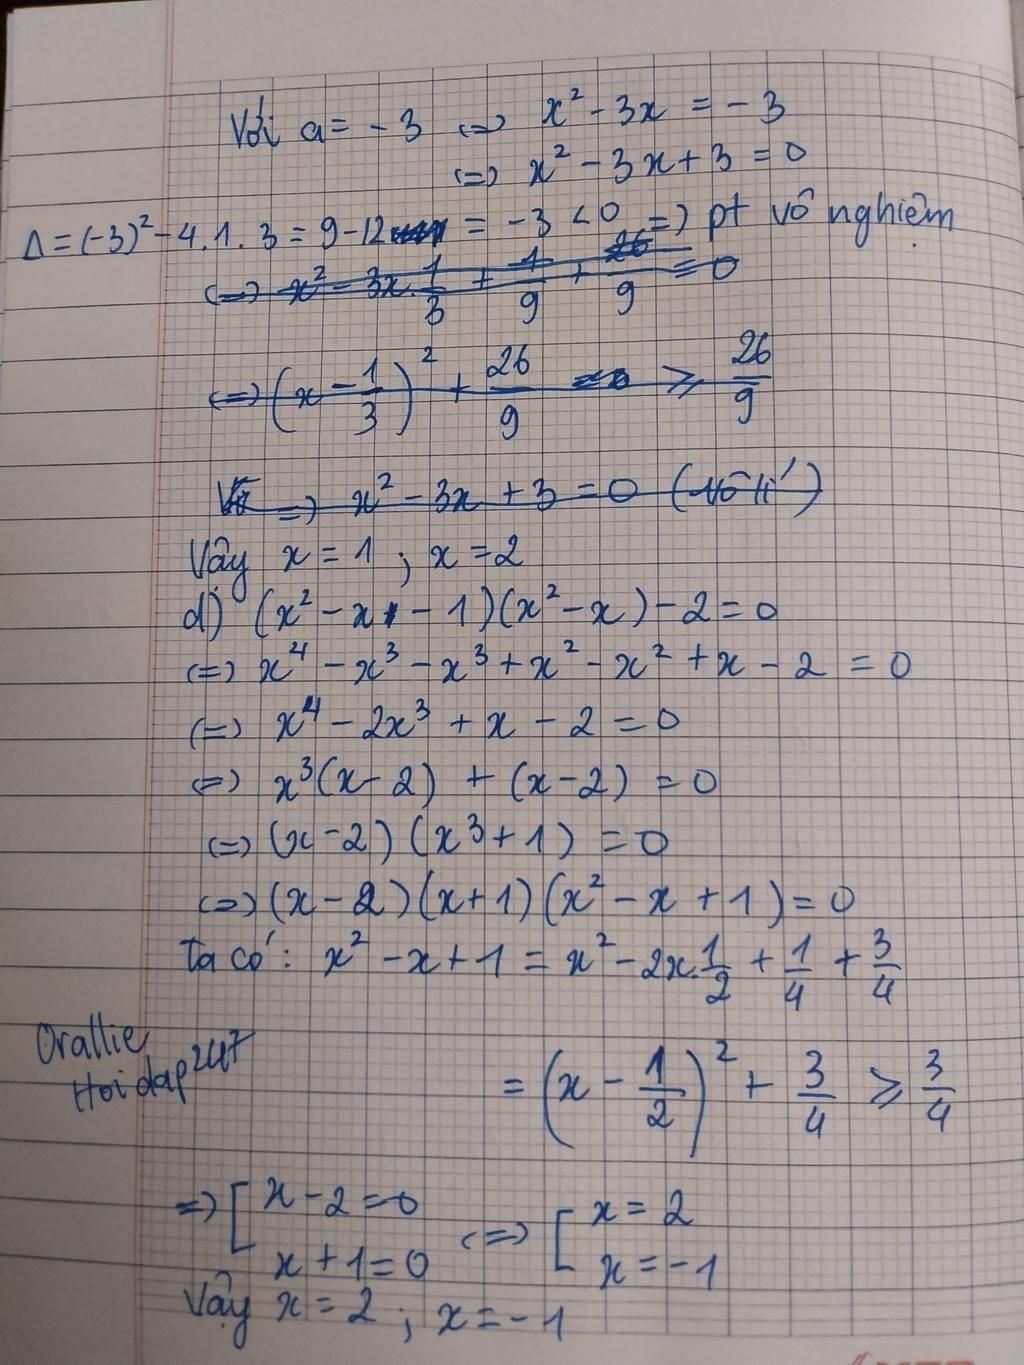 Với a = -3 <=> x² - 3x = -3
<=> x² - 3x + 3 = 0
Δ = (-3)² - 4.1.3 = 9 - 12 = -3 < 0 => pt vô nghiệm
<=> x² - 3x.1/3 + 1/9 + 26/9 = 0
<=> (x - 1/3)² + 26/9 ≥ 26/9
=> x² - 3x + 3 = 0 (vô lí)
Vậy x = 1 ; x = 2
d) (x² - x - 1)(x² - x) - 2 = 0
<=> x⁴ - x³ - x³ + x² - x² + x - 2 = 0
<=> x⁴ - 2x³ + x - 2 = 0
<=> x³(x - 2) + (x - 2) = 0
<=> (x - 2)(x³ + 1) = 0
<=> (x - 2)(x + 1)(x² - x + 1) = 0
Ta có: x² - x + 1 = x² - 2x.1/2 + 1/4 + 3/4
Orallie
Hoidap247
= (x - 1/2)² + 3/4 ≥ 3/4
=> [ x - 2 = 0 <=> [ x = 2
x + 1 = 0 x = -1
Vậy x = 2 ; x = -1